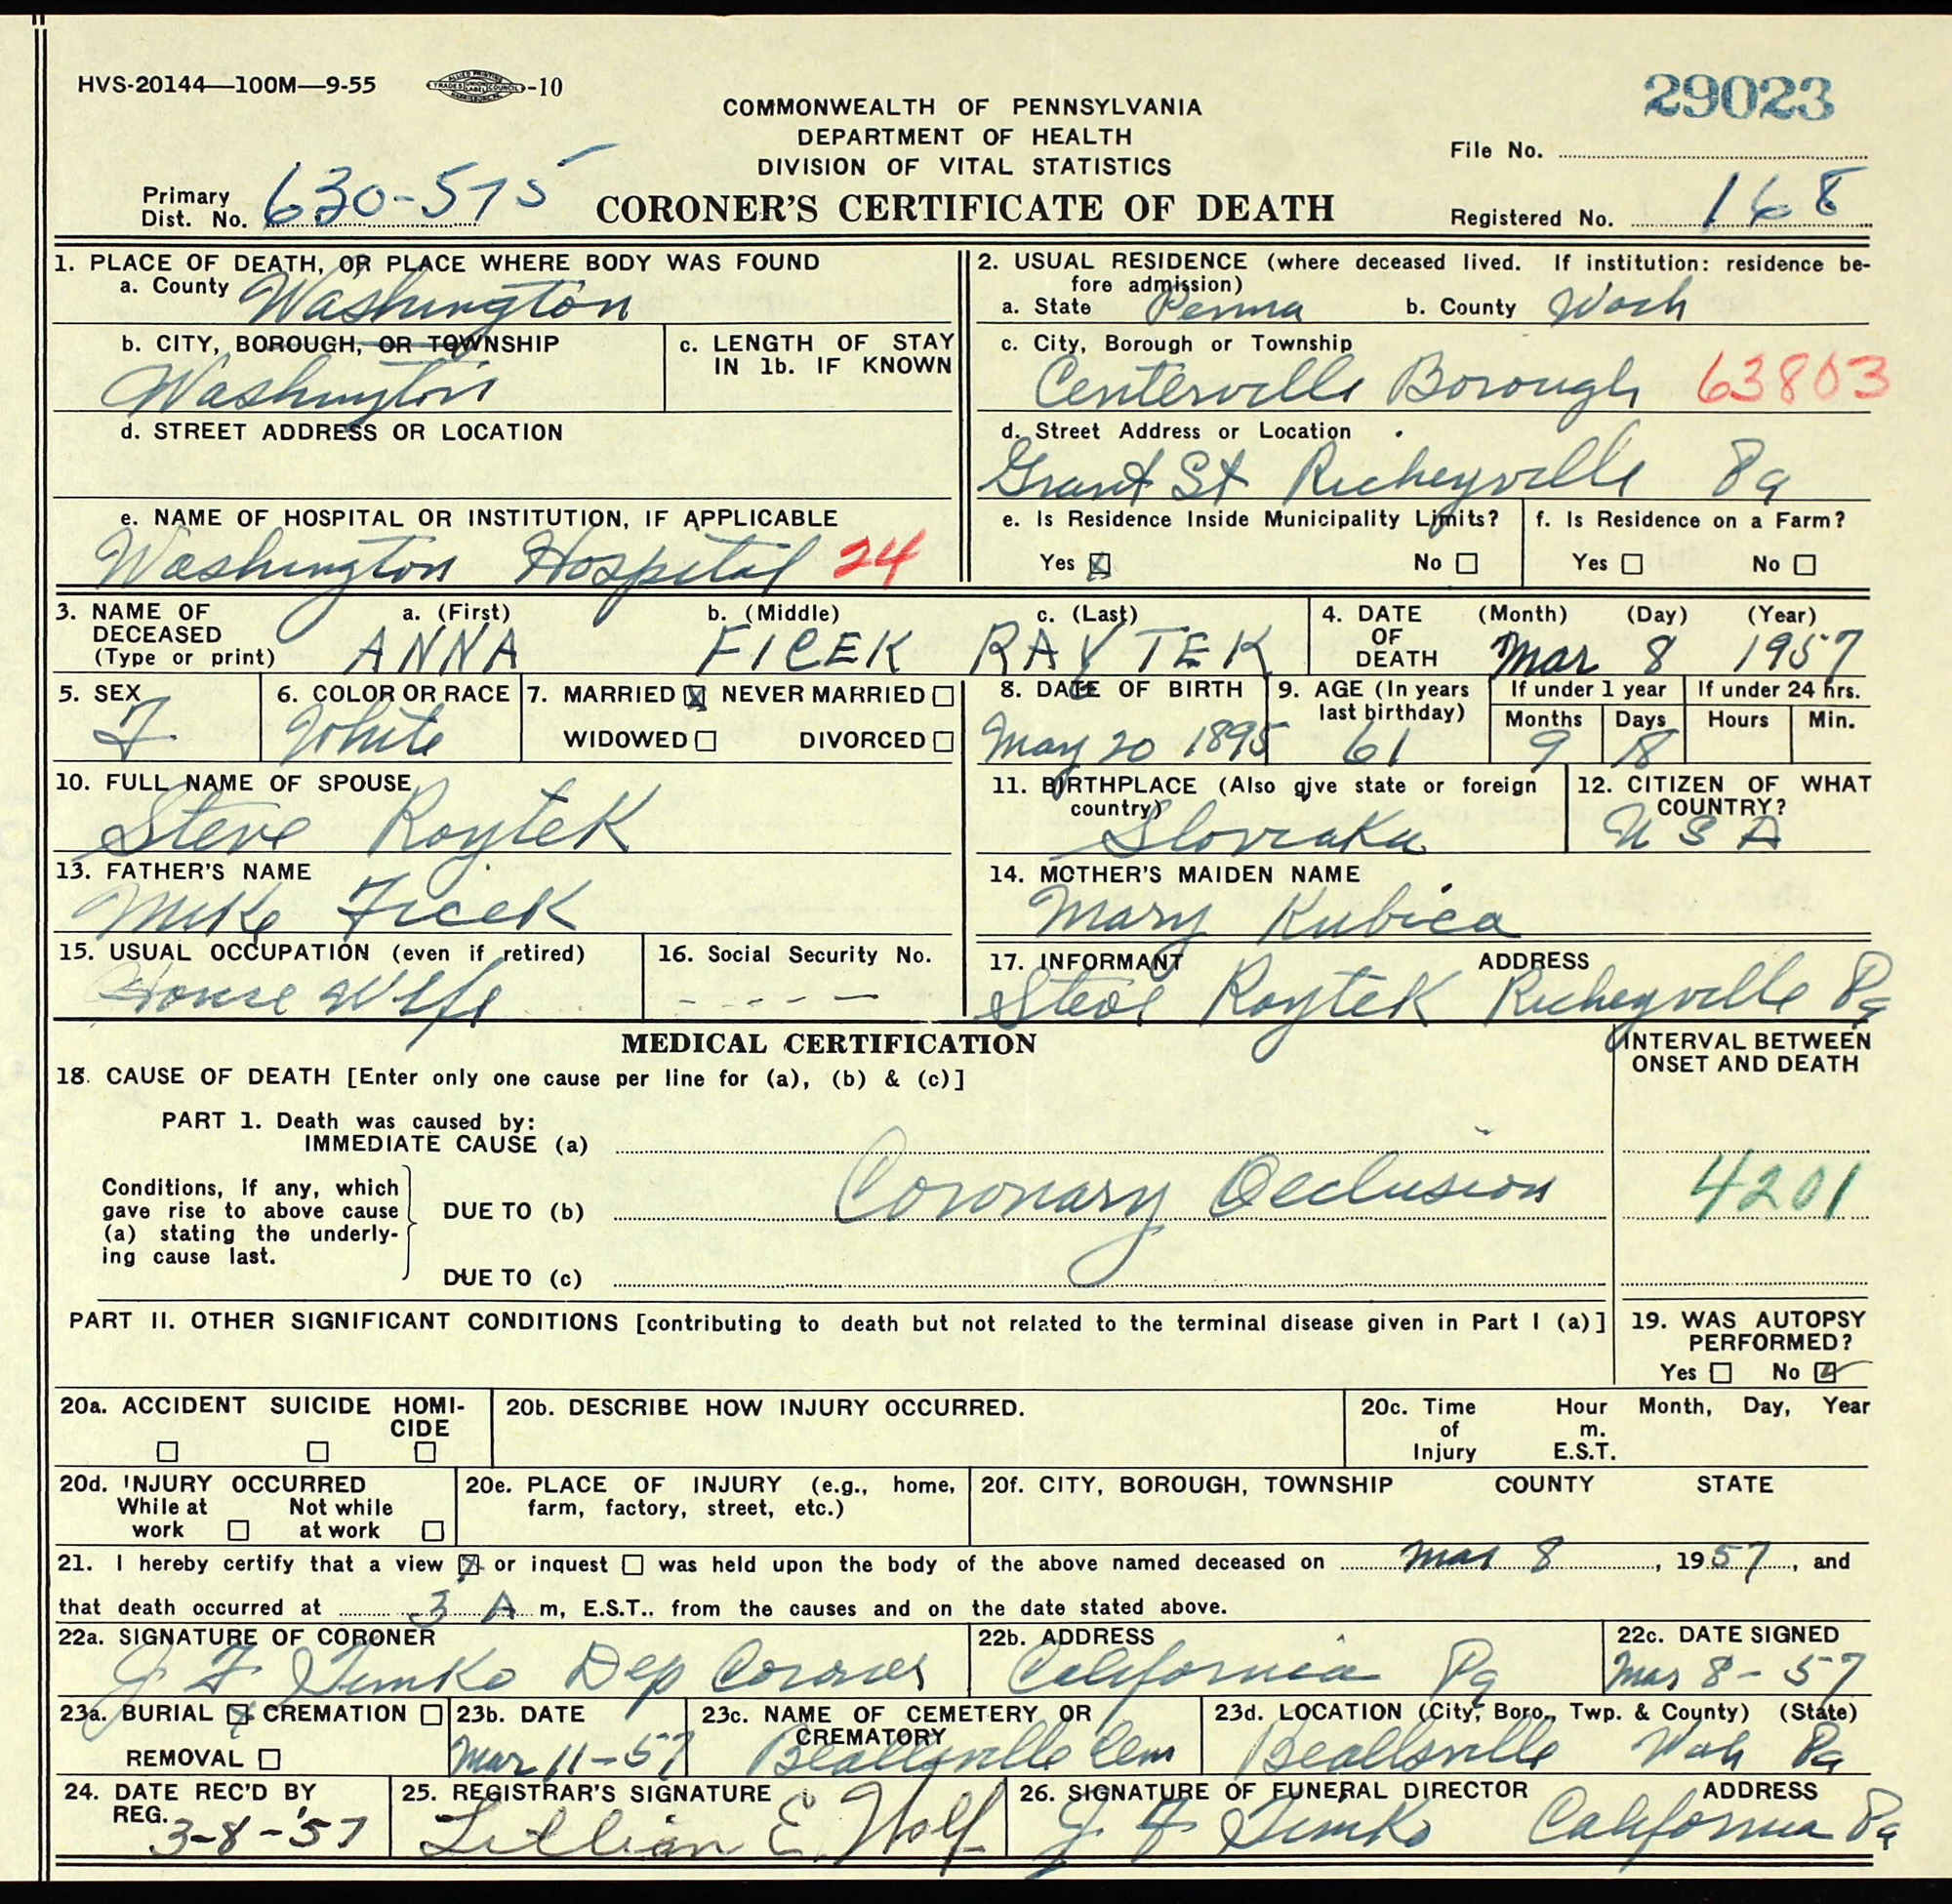 HVS-20144—100M—9-55 ALLIED PRINTING TRADES UNION LABEL COUNCIL -10
29023
COMMONWEALTH OF PENNSYLVANIA
DEPARTMENT OF HEALTH
DIVISION OF VITAL STATISTICS
CORONER'S CERTIFICATE OF DEATH
File No.
Primary Dist. No. 630-575
Registered No. 168
1. PLACE OF DEATH, OR PLACE WHERE BODY WAS FOUND
a. County Washington
b. CITY, BOROUGH, OR TOWNSHIP
Washington
c. LENGTH OF STAY
IN 1b. IF KNOWN
d. STREET ADDRESS OR LOCATION
e. NAME OF HOSPITAL OR INSTITUTION, IF APPLICABLE
Washington Hospital 24
2. USUAL RESIDENCE (where deceased lived. If institution: residence be-
fore admission)
a. State Penna b. County Wash
c. City, Borough or Township
Centerville Borough 63803
d. Street Address or Location
Grant St Richeyville Pa
e. Is Residence Inside Municipality Limits?
Yes X No
f. Is Residence on a Farm?
Yes No
3. NAME OF DECEASED (Type or print)
a. (First) b. (Middle) c. (Last)
ANNA FICEK RAYTEK
4. DATE OF DEATH (Month) (Day) (Year)
Mar 8 1957
5. SEX
F
6. COLOR OR RACE
White
7. MARRIED X NEVER MARRIED
WIDOWED DIVORCED
8. DATE OF BIRTH
May 20 1895
9. AGE (In years
last birthday)
61
If under 1 year
Months Days
9 18
If under 24 hrs.
Hours Min.
10. FULL NAME OF SPOUSE
Steve Roytek
11. BIRTHPLACE (Also give state or foreign
country)
Slovraku
12. CITIZEN OF WHAT
COUNTRY?
U S A
13. FATHER'S NAME
Mike Ficek
14. MOTHER'S MAIDEN NAME
Mary Kubica
15. USUAL OCCUPATION (even if retired)
House Wife
16. Social Security No.
- - - - —
17. INFORMANT ADDRESS
Steve Roytek Richeyville Pa
MEDICAL CERTIFICATION
INTERVAL BETWEEN
ONSET AND DEATH
18. CAUSE OF DEATH [Enter only one cause per line for (a), (b) & (c)]
PART 1. Death was caused by:
IMMEDIATE CAUSE (a)
Conditions, if any, which
gave rise to above cause
(a) stating the underly-
ing cause last.
DUE TO (b) Coronary Occlusion 4201
DUE TO (c)
PART II. OTHER SIGNIFICANT CONDITIONS [contributing to death but not related to the terminal disease given in Part I (a)]
19. WAS AUTOPSY
PERFORMED?
Yes No
20a. ACCIDENT SUICIDE HOMI-
CIDE
20b. DESCRIBE HOW INJURY OCCURRED.
20c. Time of Injury Hour m. E.S.T. Month, Day, Year
20d. INJURY OCCURRED
While at work Not while at work
20e. PLACE OF INJURY (e.g., home,
farm, factory, street, etc.)
20f. CITY, BOROUGH, TOWNSHIP COUNTY STATE
21. I hereby certify that a view X or inquest was held upon the body of the above named deceased on Mar 8, 1957, and
that death occurred at 3 A m, E.S.T.. from the causes and on the date stated above.
22a. SIGNATURE OF CORONER
J F Timko Dep Coroner
22b. ADDRESS
California Pa
22c. DATE SIGNED
Mar 8-57
23a. BURIAL X CREMATION
REMOVAL
23b. DATE
Mar 11-57
23c. NAME OF CEMETERY OR
CREMATORY
Beallsville Cem
23d. LOCATION (City, Boro., Twp. & County) (State)
Beallsville Wash Pa
24. DATE REC'D BY
REG.
3-8-'57
25. REGISTRAR'S SIGNATURE
Lillian E. Wolf
26. SIGNATURE OF FUNERAL DIRECTOR ADDRESS
J. F. Timko California Pa